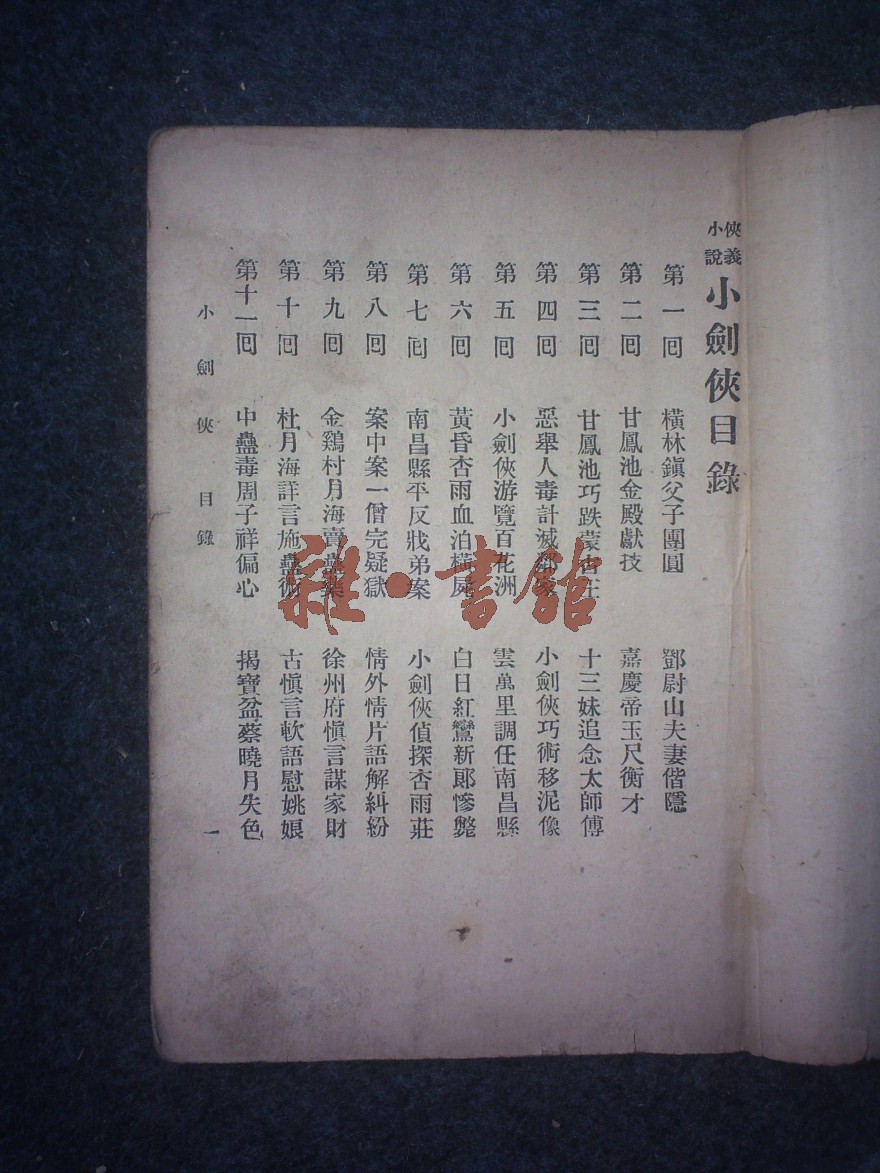 俠義小說
小劍俠目錄
第一回 橫林鎭父子團圓 鄧尉山夫妻偕隱
第二回 甘鳳池金殿獻技 嘉慶帝玉尺衡才
第三回 甘鳳池巧跌蒙古王 十三妹追念太師傅
第四回 惡舉人毒計滅鄧家 小劍俠巧術移泥像
第五回 小劍俠游覽百花洲 雲萬里調任南昌縣
第六回 黃昏杏雨血泊橫屍 白日紅鸞新郎慘斃
第七回 南昌縣平反戕弟案 小劍俠偵探杏雨莊
第八回 案中案一僧完疑獄 情外情片語解糾紛
第九回 金鷄村月海賣蠱藥 徐州府愼言謀家財
第十回 杜月海詳言施蠱術 古愼言軟語慰姚娘
第十一回 中蠱毒周子祥偏心 揭寶盆蔡曉月失色
小劍俠 目錄 一
雜·書館